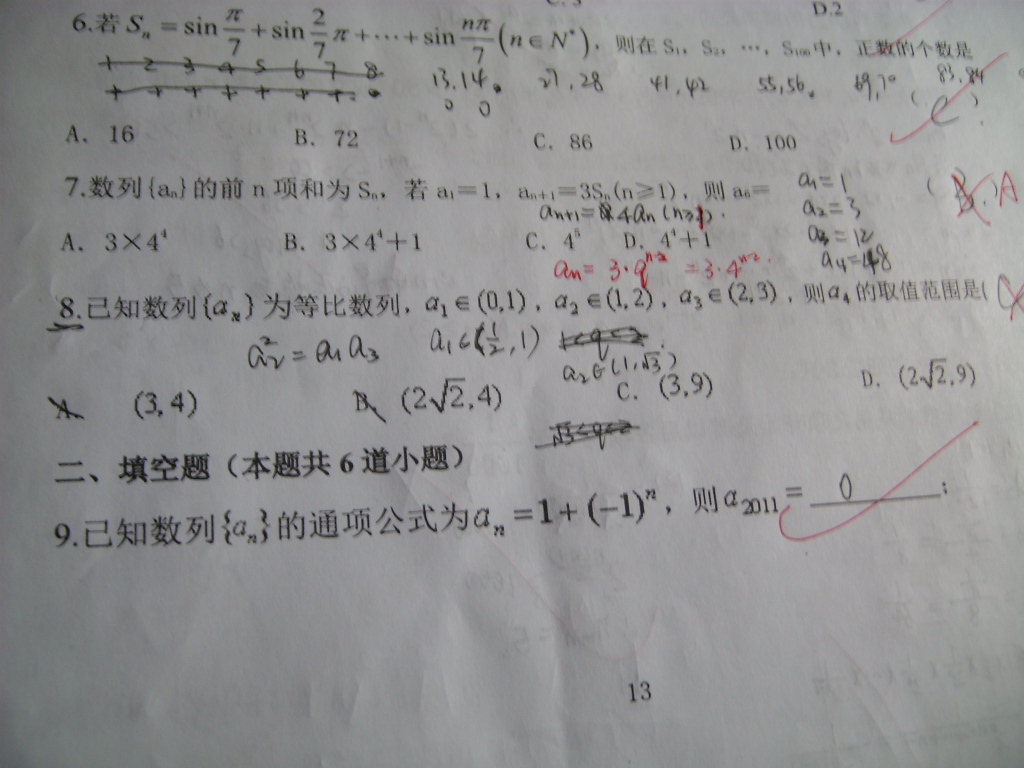 D.2
6.若 Sₙ = sin π/7 + sin 2/7 π + ⋯ + sin nπ/7 (n ∈ N*), 则在 S₁, S₂, ⋯, S₁₀₀中, 正数的个数是
1 2 3 4 5 6 7 8 13,14. 27,28 41,42 55,56. 69,70 83,84
+ + + + + + + 0 0 ( C )
A. 16 B. 72 C. 86 D. 100
7.数列{aₙ}的前 n 项和为 Sₙ, 若 a₁=1, aₙ₊₁=3Sₙ(n≥1), 则 a₆= ( B ) A
a₁=1
a₂=3
a₃=12
a₄=48
aₙ₊₁= 4aₙ (n≥1).
A. 3×4⁴ B. 3×4⁴+1 C. 4⁵ D. 4⁴+1
aₙ= 3·qⁿ⁻² =3·4ⁿ⁻².
8.已知数列{aₙ}为等比数列, a₁∈(0,1), a₂∈(1,2), a₃∈(2,3), 则a₄的取值范围是(
a₂² = a₁ a₃ a₁∈(1/2,1)
a₂∈(1,√3)
A (3,4) B. (2√2,4) C. (3,9) D. (2√2,9)
二、填空题(本题共 6 道小题)
9.已知数列{aₙ}的通项公式为aₙ=1+(−1)ⁿ, 则a₂₀₁₁= 0 ;
13